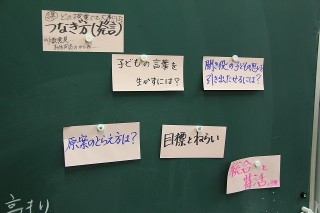 つなぎ方(発言)
子どもの言葉を
生かすには？
聞き役の子どもの思いを
引き出たせるには？
原案のとらえ方は？
目標とねらい
総合と
特活
高まり